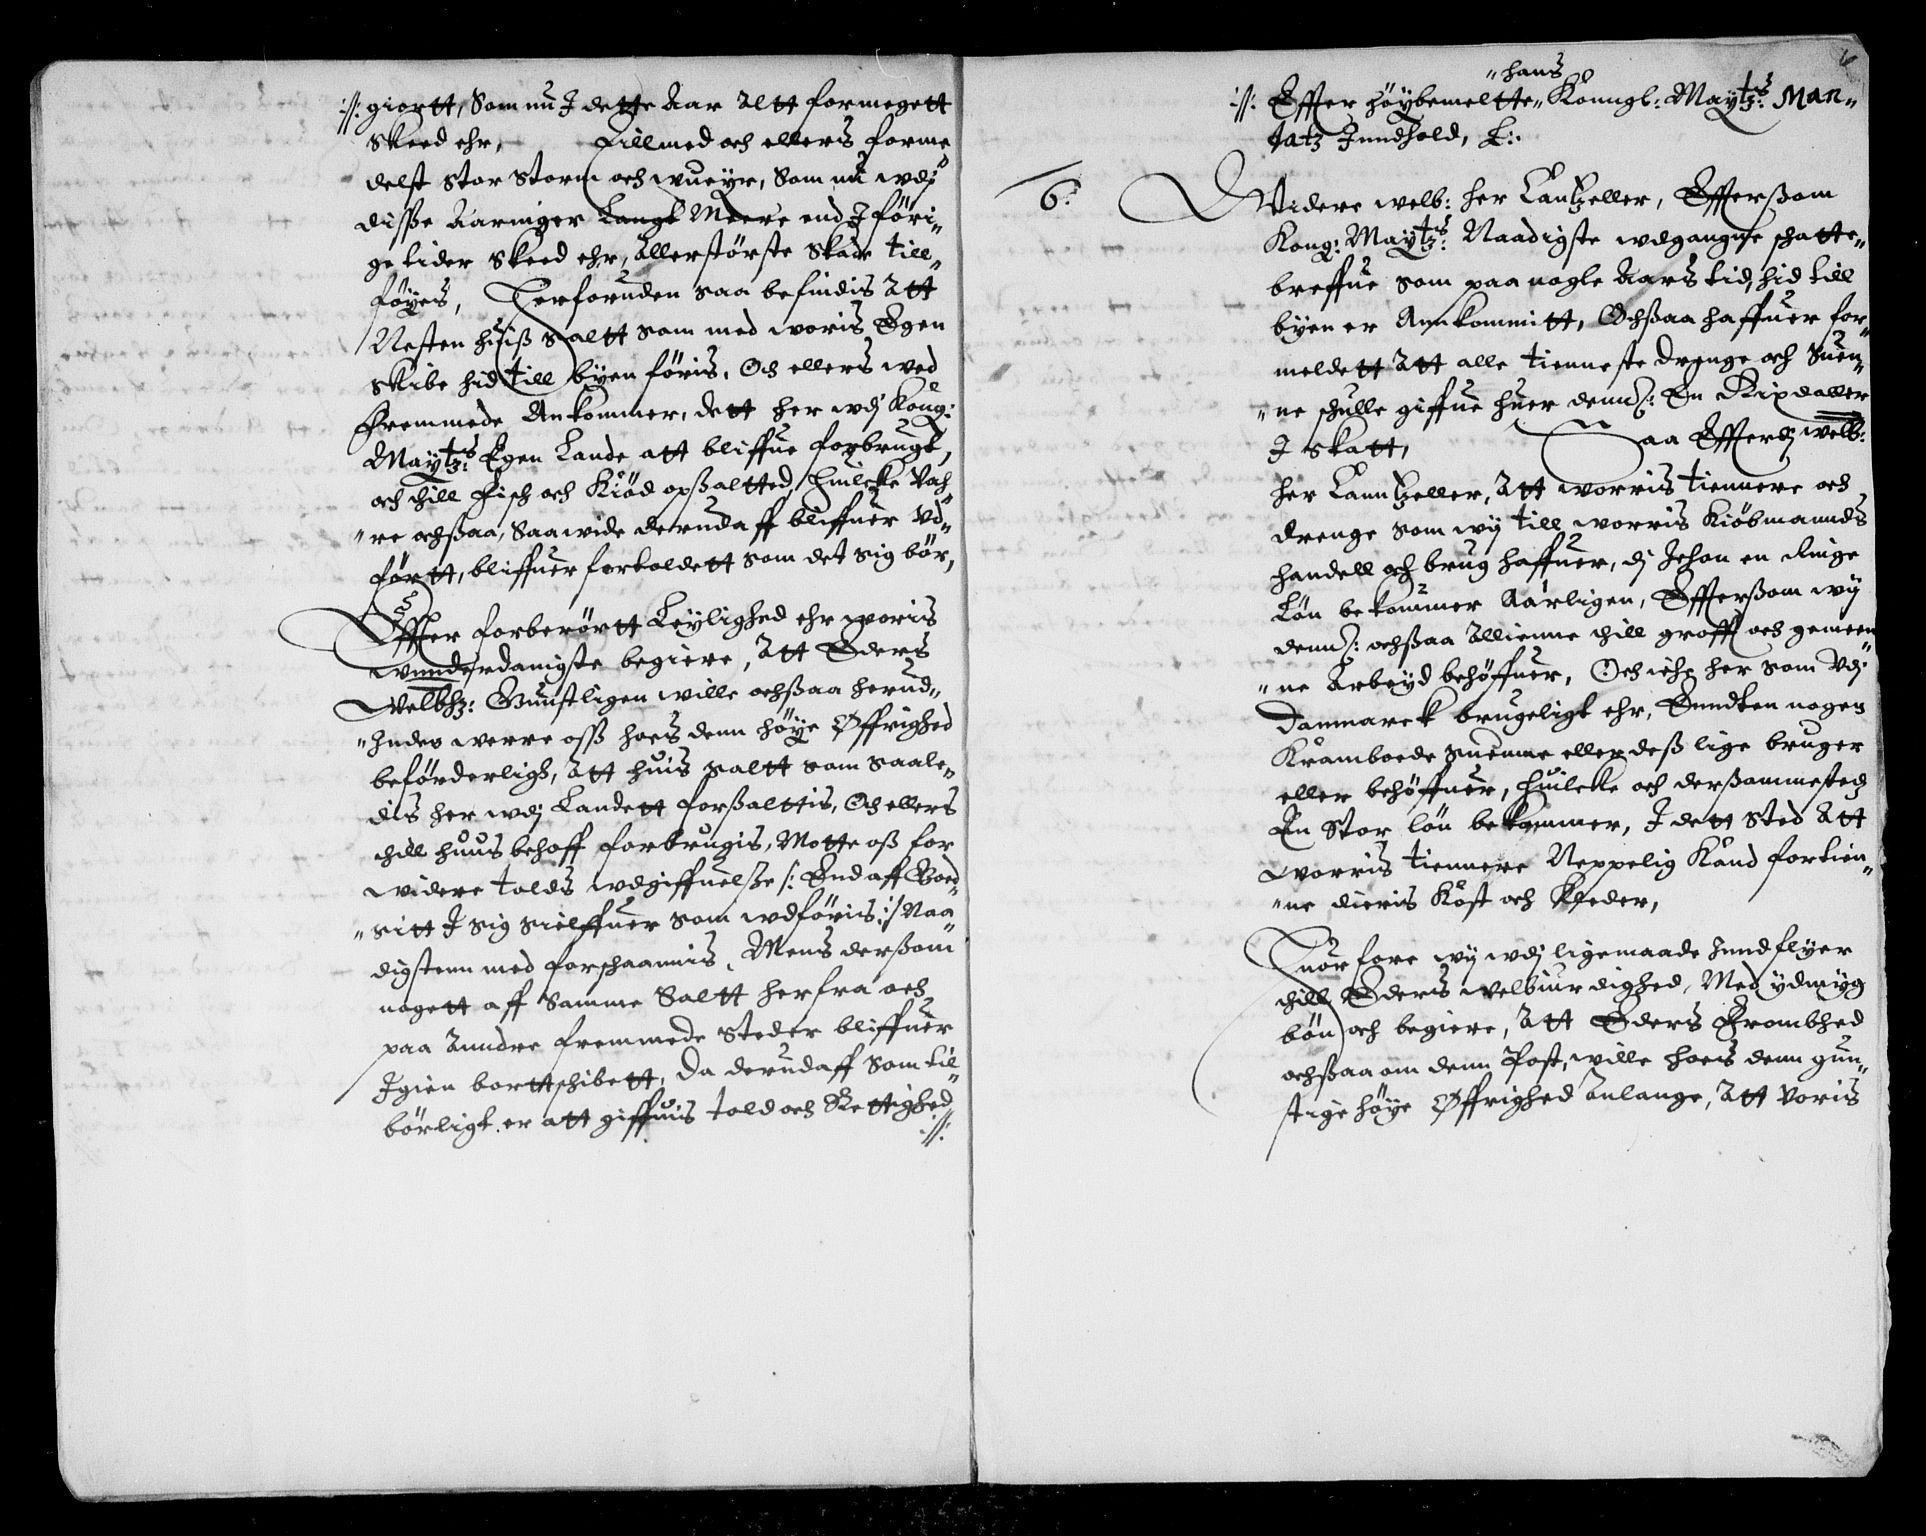 :/: giortt, Som nu J dette Aar Altt formegett
skeed ehr, Tillmed och elleris forme
delst stor storm och wueyr, Som nu wdj
disse Aaringer Langt Meere end J föri„
ge tider skeed ehr, Allerstörste skade till„
föyes, Herforuden saa befindis Att
Nesten huiß Saltt som med woris Egen
skibe hid till byen föris, Och ellers wed
Fremmede Ankommer, dett her wdj Kong:
Maytz: Egen Lande att bliffue forbrugt,
och thill Fisch och Kiöd opßaltted, Huilcke Vah
„re ochßaa, Saawide derudaff bliffuer Vd„
förtt, bliffuer fortoldett som det sig bör,
Effter forberörtt Leylighed ehr woris
wnnderdanigste begiere, Att Eders
Velbhz: Gunstligen wille ochßaa herud„
„Inden werre oss hoes denn höye Øffrighed
beförderligh, Att huis saltt som saale„
dis her wdj Landett forßalttis, Och ellers
thill huus behoff forbrugis, Motte oß for
widere tolds wdgiffuelße /: End aff Goed„
„sitt J sig sielffuer som wdföris :/ Naa„
digstenn med forschaannis, Mens derßom
nogett aff Samme Saltt herfra och
paa Anndre fremmede steder bliffuer
Jgien borttschibett, Da derudaff som til„
börligt er att giffuis told och Rettighed
:/:
6
„hans
:/: Effter höybemeltte„ Konngl: Maytz: Man„
datz Jnndhold, &:.
6: Widere welb: her Cantzeller, Effterßom
Kong: Maytz: Naadigste wdgangne schatte„
breffue som paa nogle Aars tid, hid till
byen er Annkommitt, Ochßaa haffuer for„
meldett Att alle tienneste drenge och Suen„
„ne schulle giffue huer denn/: En Rixdaller
J skatt, Saa Efterdj welb:
her Canntzeller, Att worris tiennere och
drenge som wij till worris Kiöbmannds
handell och brug haffuer, dj Jchon en Ringe
Lön bekommer Aarligen, Effterßom wij
denn/: ochßaa Allienne thill groff och gemeen
„ne Arbeyd behöffuer, Och iche her som Vdj
Danmarck brugeligt ehr, Enndten nogen
Kramboede Suenne eller deß lige bruger
eller behöffuer, Huilcke och derßammesteds
En Stor lön bekommer, J dett sted Att
worris tiennere Neppelig Kand fortien„
„ne dieris Kost och Kleder,
Huorfore wij wdj ligemaade Jnndflyer
thill Eders welbiurdighed, Med ydmyg
bön och begiere, Att Eders Frombhed
ochßaa om denn Post, wille hoes denn gun„
stige höye Øffrighed Anlange, Att Voris